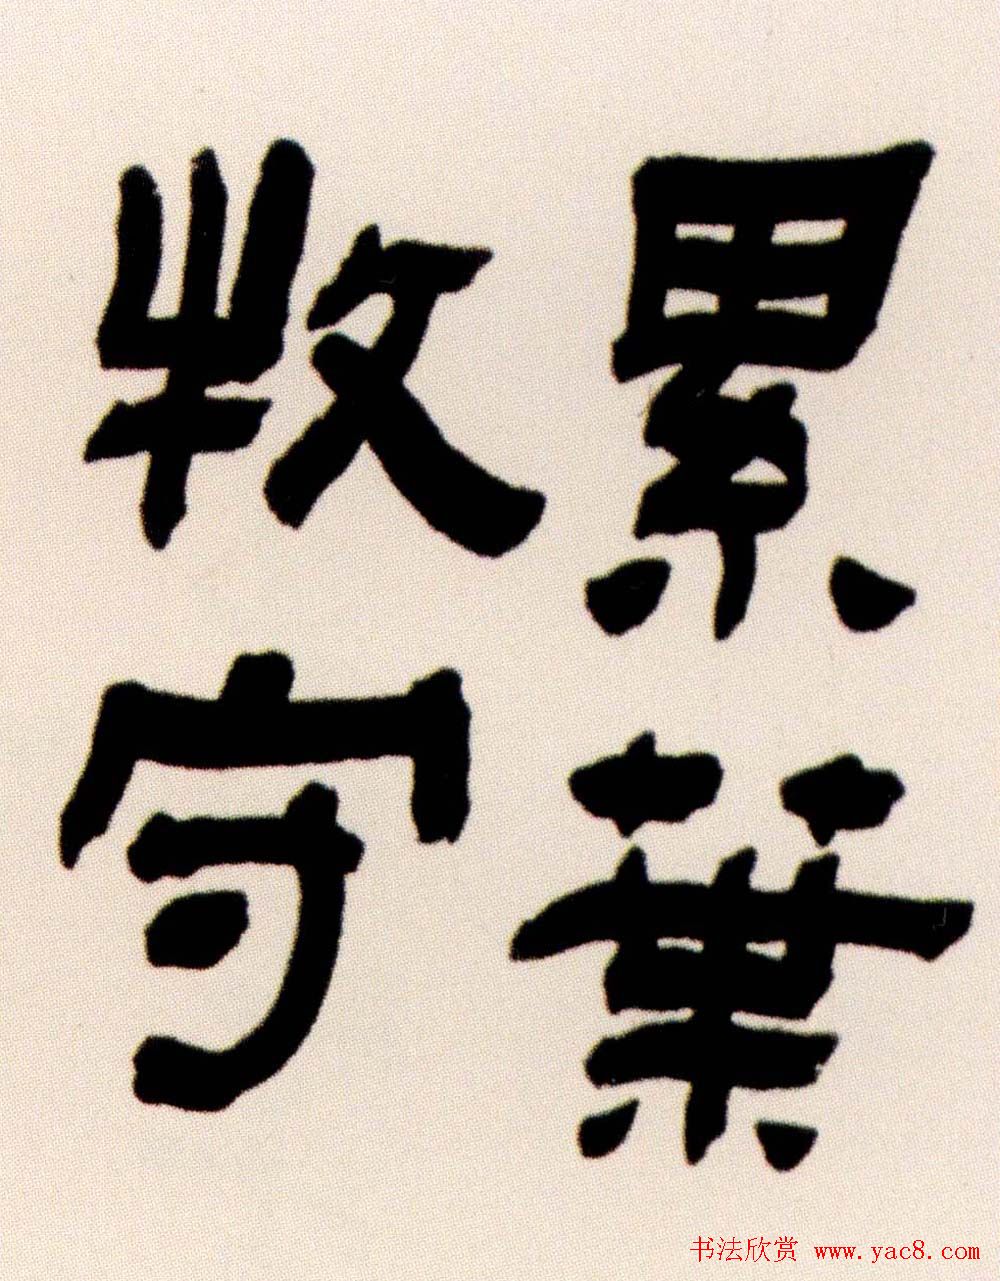 累葉
牧守
书法欣赏 www.yac8.com